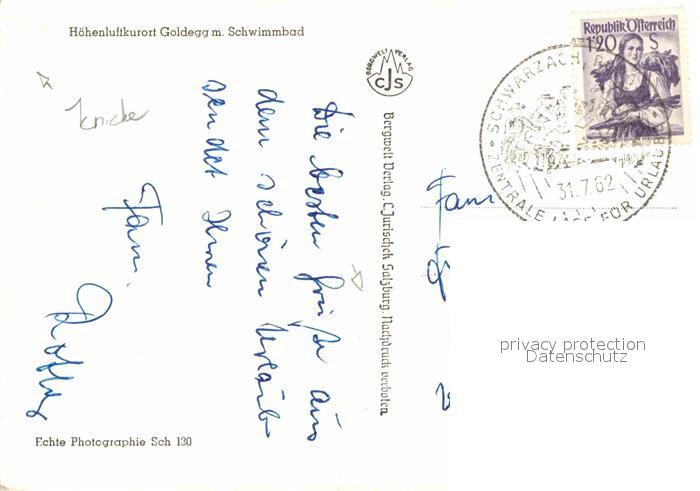 Höhenluftkurort Goldegg m. Schwimmbad
Knicke
Die besten Grüße aus
dem schönen Urlaub
sendet Ihnen
Fam.
BERGWELT VERLAG
CJS
Bergwelt Verlag, C. Jurischek Salzburg. Nachdruck verboten
Echte Photographie Sch 130
Republik Österreich
1.20 S
SCHWARZACH
31.7.62
ZENTRALE LAGE FÜR URLAUB
Fam
privacy protection
Datenschutz